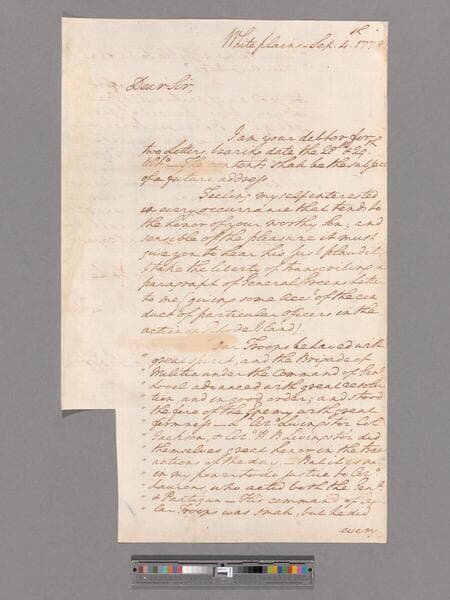 White plains Sep. 4th. 1778
Dear Sir,
I am your debtor for
two letters bearing date the 28th & 29
Ulto. The contents shall be the subject
of a future address
Feeling myself interested
in every occurrance that tends to
the honor of your worthy Son, and
sensible of the pleasure it must
give you to hear his just plaudit
I take the liberty of transcribing a
paragraph of General Greens letter
to me (giving some acct. of the con
duct of particular officers in the
action on Rhode Island).
"Our Troops behaved with
" great spirit, and the Brigade of
" Militia under the command of Genl
" Lovel advanced with great resolu
" tion and in good order; and stood
" the fire of the Enemy with great
" firmness — Lt Colo. Livingston Colo
" Jackson, & Colo. H B Livingston did
" themselves great honor in the trans
" action of the day — But its not
" in my power to do justice to Colo
" Laurens who acted both the Genl
" & Partizan — His command of regu
" lar Troops was small, but he did
every